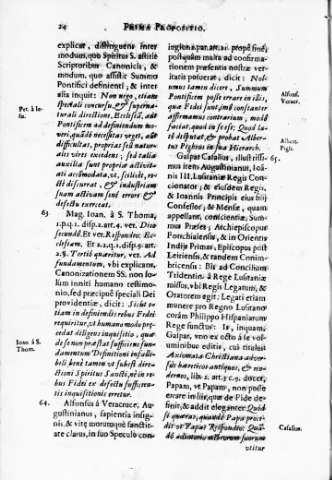 24 PRIMA PROPOSITIO.
explicat, distinguens inter
modum, quo Spiritus S. assistit
Scriptoribus Canonicis, &
modum, quo assistit Summo
Pontifici definienti, & inter
alia inquit: Non nego, etiam
speciali concursu, & superna-
turali directione, Ecclesiæ, aut
Pontificem ad definiendum mo-
veri, quando necessitas urget, aut
difficultas, proprias seu natura-
les vires excedens; sed talia
auxilia sunt propria activita-
ti accomodata, ut, scilicet, re-
ctè discurrat, & industriam
suam activam sine errore &
defectu exerceat.
Pet. à Ie-
su.
63 Mag. Ioan. à S. Thoma,
1.p.q.1. disp.2. art.4. ver. Dico
secundò. Et ver. Respondeo: Ec-
clesiam. Et 2.2.q.1. disp.3. art.
2.§. Tertiò quæritur, ver. Ad
fundamentum, ubi explicat,
Canonizationem SS. non so-
lum inniti humano testimo-
nio, sed præcipuè speciali Dei
providentiæ, dicit: Sicut et-
iam in definiendis rebus Fidei
requiritur, ut humano modo præ-
cedat diligens inquisitio, quæ
de se non præstat sufficiens fun-
damentum Definitioni infalli-
bili benè tamen ut subest dire-
ctioni Spiritus Sancti, nè in re-
bus Fidei ex defectu sufficien-
tis inquisitionis erretur.
Ioan. à S.
Thom.
64. Alfonsus à Veracruce, Au-
gustinianus, sapientia insig-
nis, & vitæ morumque sanctit-
ate clarus, in suo Speculo con-
iugiorum par. art. propè fine,
postquam multa ad confirma-
tionem præsentis nostræ ver-
itatis posuerat, dicit: Nol-
umus tamen dicere, Summum
Pontificem posse errare in iis,
quæ Fidei sunt, imò constanter
affirmamus contrarium, modò
faciat, quod in se est: Quod la-
tè disserit, & probat Albertus
Pighius in sua Hierarch.
Alfons.
Veracr.
Albert.
Pigh.
65. Gaspar Casalius, illustrissi-
mus item Augustinianus, Ioan-
nis III. Lusitaniæ Regis Con-
cionator, & eiusdem Regis,
& Ioannis Principis eius filij
Confessor, & Mensæ, quam
appellant, conscientiæ, Sum-
mus Præses, Archiepiscopus
Fonchialensis, & in Oriente
Indiæ Primas, Episcopus post
Leiriensis, & tandem Conim-
bricensis: Bis ad Concilium
Tridentin. à Rege Lusitaniæ
missus, ubi Regis Legatum, &
Oratorem egit: Legati etiam
munere pro Regno Lusitano
coram Philippo Hispaniarum
Rege functus: Is, inquam,
Gaspar, uno ex octo à se vo-
luminibus editis, cui titulus
Axiomata Christiana adver-
sus hæreticos antiquos, & mo-
dernos, lib.2. art.3. c.9. docet,
Papam, ut Papam, non posse
errare in iis, quæ de Fide de-
finit, & addit elegantèr Quid
si quæras, quando Papa proce-
dit ut Papa? Respondeo: Quan-
do adiutorio aliorum suorum
utitur
Casalius.